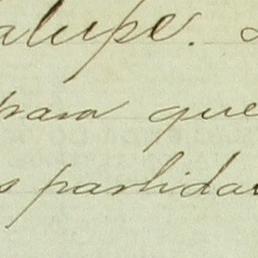 alupe.
para que
s partida